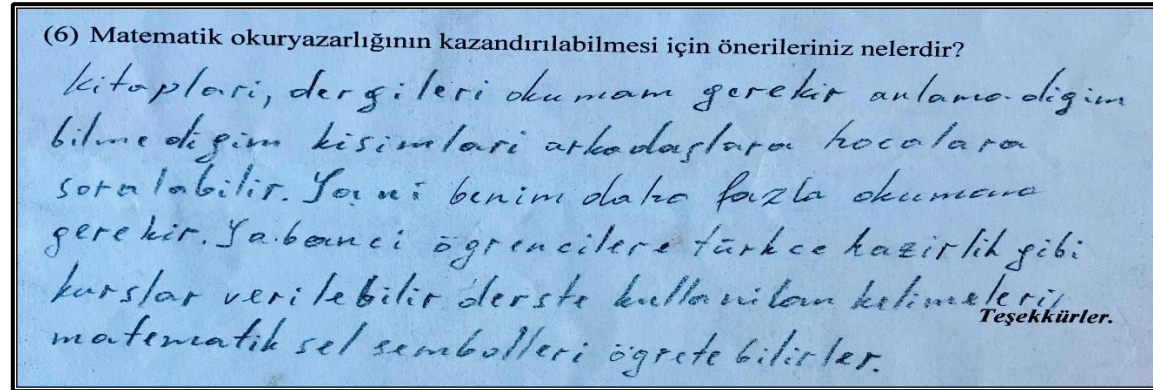 (6) Matematik okuryazarlığının kazandırılabilmesi için önerileriniz nelerdir?
kitaplari, dergileri okumam gerekir anlamadigim
bilmedigim kisimlari arkadaşlara hocalara
soralabilir. Yani benim daha fazla okumam
gerekir. Yabanci ögrencilere türkce hazirlik gibi
kurslar verilebilir derste kullanilan kelimeleri,
Teşekkürler.
matematik sel sembolleri ögretebilirler.